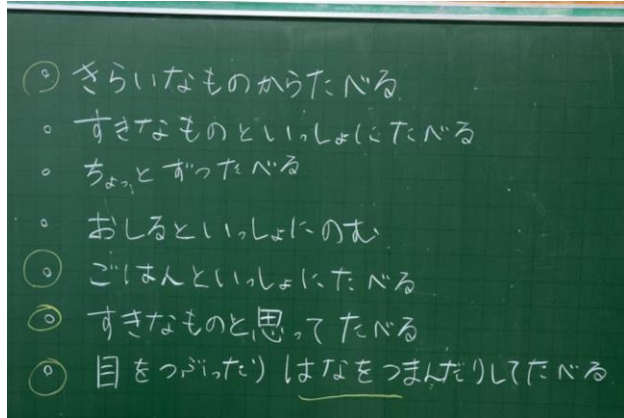 。きらいなものからたべる
。すきなものといっしょにたべる
。ちょっとずつたべる
。おしるといっしょにのむ
。ごはんといっしょにたべる
。すきなものと思ってたべる
。目をつぶったりはなをつまんだりしてたべる